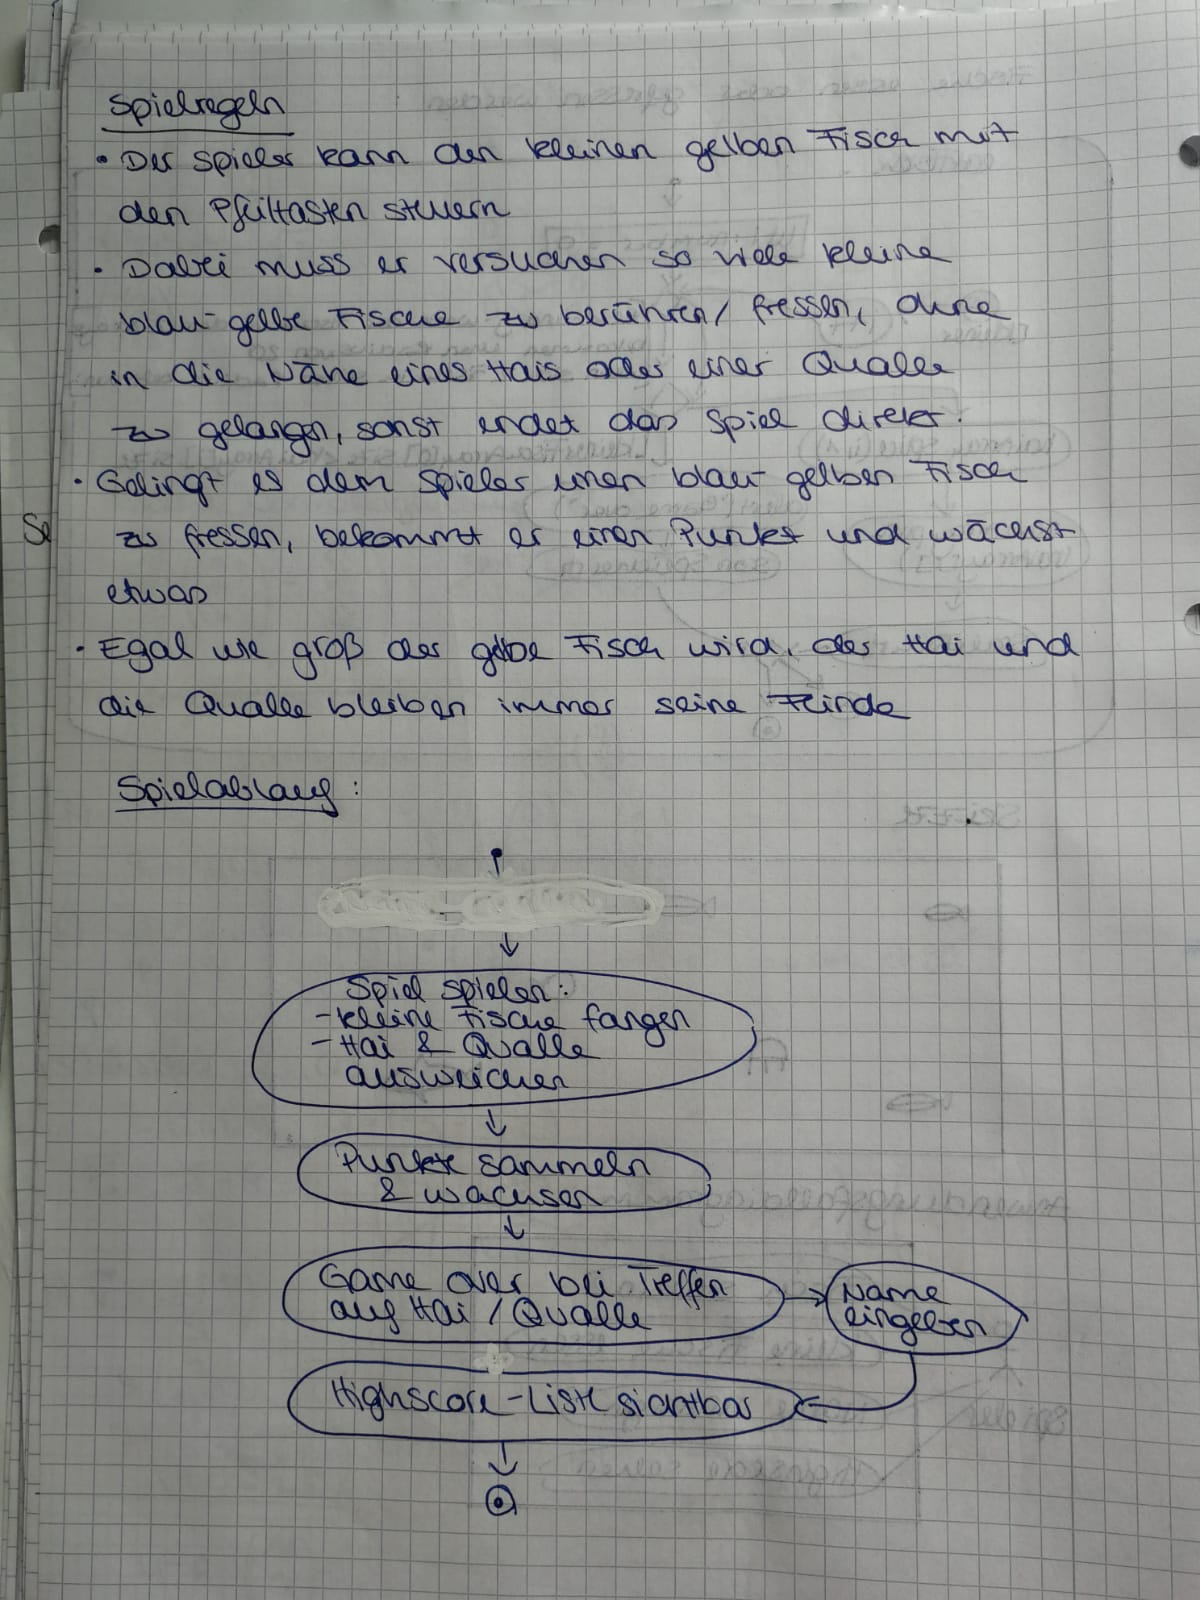 Spielregeln
• Der Spieler kann den kleinen gelben Fisch mit
den Pfeiltasten steuern
• Dabei muss er versuchen so viele kleine
blau-gelbe Fische zu berühren/fressen, ohne
in die Nähe eines Hais oder einer Qualle
zu gelangen, sonst endet das Spiel direkt.
• Gelingt es dem Spieler einen blau-gelben Fisch
zu fressen, bekommt er einen Punkt und wächst
etwas
• Egal wie groß der gelbe Fisch wird, der Hai und
die Qualle bleiben immer seine Feinde
Spielablauf:
Spiel spielen:
- kleine Fische fangen
- Hai & Qualle
ausweichen
Punkte sammeln
& wachsen
Game over bei Treffen
auf Hai / Qualle
Name
eingeben
Highscore-Liste sichtbar